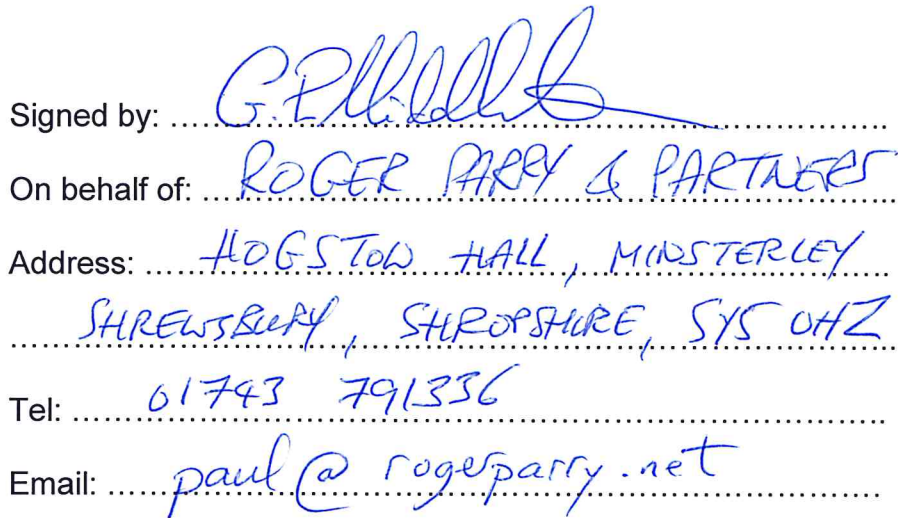 Signed by:
On behalf of: ROGER PARRY & PARTNERS
Address: HOGSTOW HALL, MINSTERLEY
SHREWSBURY, SHROPSHIRE, SY5 0HZ
Tel: 01743 791336
Email: paul@rogerparry.net